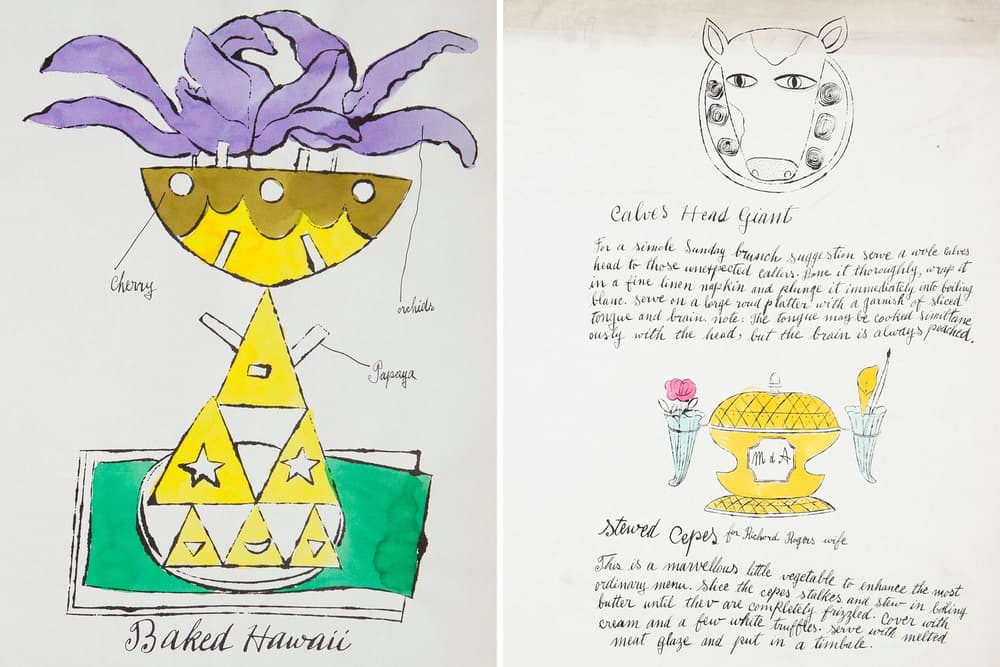 Cherry
orchids
Papaya
Baked Hawaii
Calves Head Giant
For a simole Sunday brunch suggestion serve a wole calves
head to those unexpected callers. Bone it thoroughly, wrap it
in a fine linen napkin and plunge it immediately into boiling
blanc. serve on a large roud platter with a garnish of sliced
tongue and brain. note: The tongue may be cooked similtane
ously with the head, but the brain is always poached.
M d A
Stewed Cepes for Richard Rogers wife
This is a marvellous little vegetable to enhance the most
ordinary menu. Slice the cepes stalkes and stew in boiling
butter until thev are completely frizzled. Cover with
cream and a few white truffles. serve with melted
meat glaze and put in a timbale.